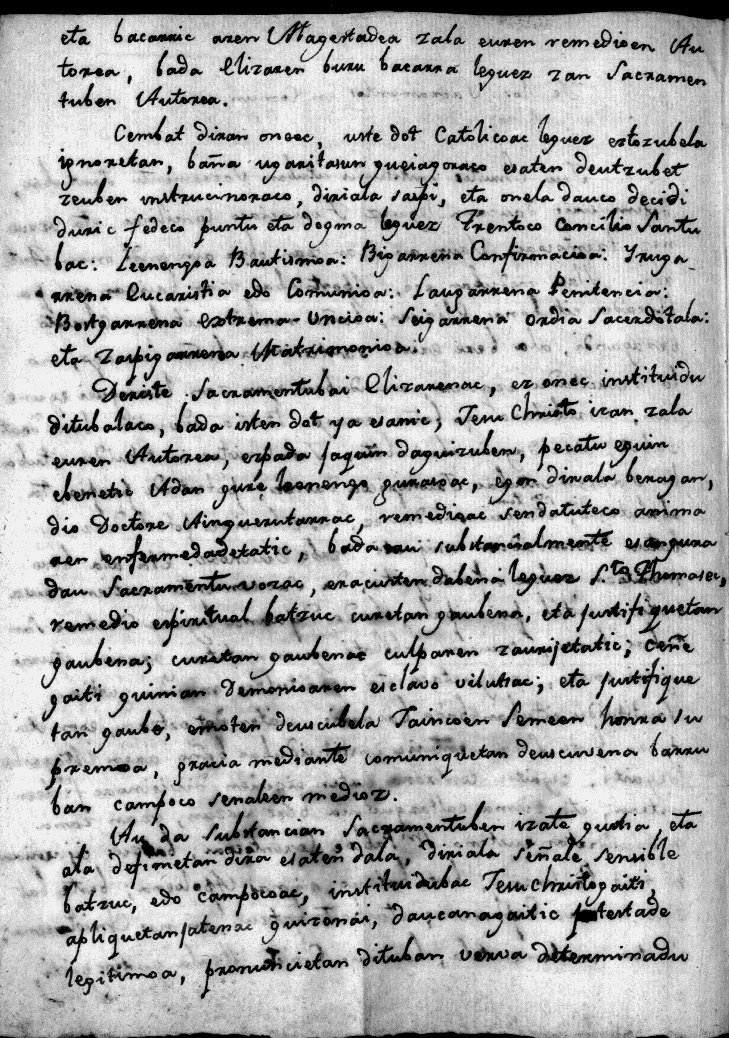 eta bacarric aren Magestadea zala euren remedioen Au
torea, bada Elizaren buru bacarra leguez zan Sacramen
tuben Autorea.
Cembat diran oneec, uste dot Catolicoac leguez eztozubela
ignoretan, baña ugaritasun gueiagoraco esaten deutzubet
zeuben instrucinoraco, diriala saspi, eta onela dauco decidi
duric fedeco puntu eta dogma leguez Trentoco Concilio Santu
bac: Leenengoa Bautismoa: Bigarrena Confirmacioa: Yruga
rrena Eucaristia edo Comunioa: Laugarrena Penitencia:
Bostgarrena extrema-Uncioa: Seigarrena Ordia Sacerdotala:
eta Zaspigarrena Matrimonioa.
Deriste Sacramentubai Elizarenac, ez onec instituidu
ditubalaco, bada isten dot ya esanic, Jesu Christo izan zala
euren Autorea, ezpada jaquin daguizuben, pecatu eguin
ebenetic Adan gure leenengo gurasoac, egon dirala beragan,
dio Doctore Ainguerutarrac, remedioac sendatuteco anima
ren enfermedadetatic, bada au substancialmente esangura
dau Sacramentu vozac, eracusten dabena leguez S.to Thumasec,
remedio espiritual batzuc curetan gaubena, eta justifiquetan
gaubena; curetan gaubenac culparen zaurijetatic; ceñe
gaiti guinian Demonioaren esclavo vilutsac; eta justifique
tan gaube, emoten deuscubela Jaincoen Semeen honra su
premoa, gracia mediante comuniquetan deuscuvena barru
ban campoco señaleen medioz.
Au da substancian Sacramentuben izate gustia, eta
ala definietan dira esaten dala, diriala señale sensible
batzuc, edo campocoac, instituidubac Jesu Christogaiti,
apliquetan jatenac guizonai, daucanagaitic potestade
legitimoa, pronuncietan dituban verva determinadu